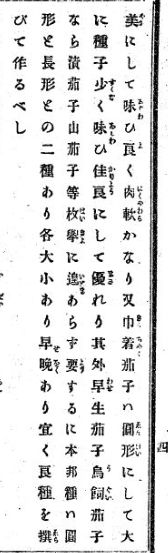 四
美にして味ひ良く肉軟かなり又巾着茄子ハ圓形にして大
に種子少く味ひ佳良にして優れり其外早生茄子鳥飼茄子
なら漬茄子山茄子等枚擧に遑あらず要するに本邦種ハ圓
形と長形との二種あり各大小あり早晩あり宜く良種を撰
びて作るべし